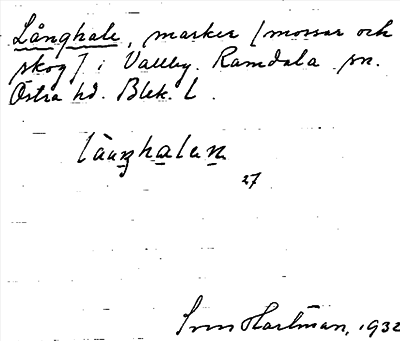 Långhale, marker [mossar och
skog] i Vallby. Ramdala sn.
Östra hd. Blek. L.
långhalen
27
Sven Hartman, 1932